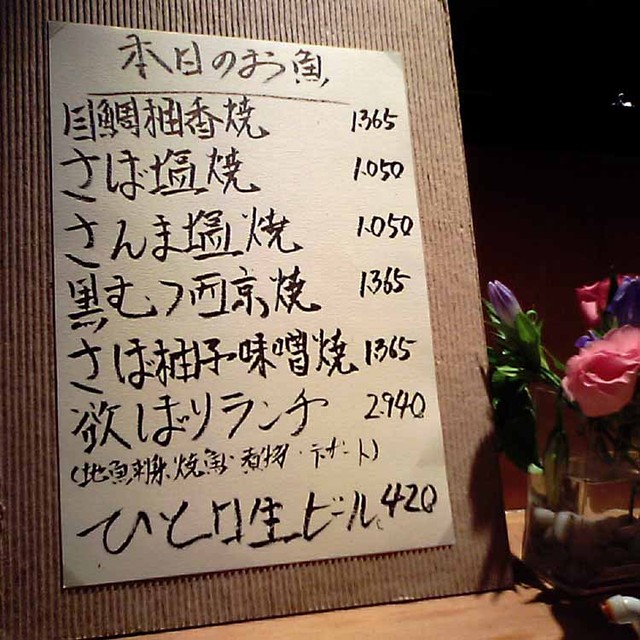 本日のお魚
目鯛柚香焼 1.365
さば塩焼 1.050
さんま塩焼 1.050
黒むつ西京焼 1.365
さば柚子味噌焼 1.365
欲ばりランチ 2.940
(地魚刺身.焼魚.煮物.デザート)
ひと口生ビール 420